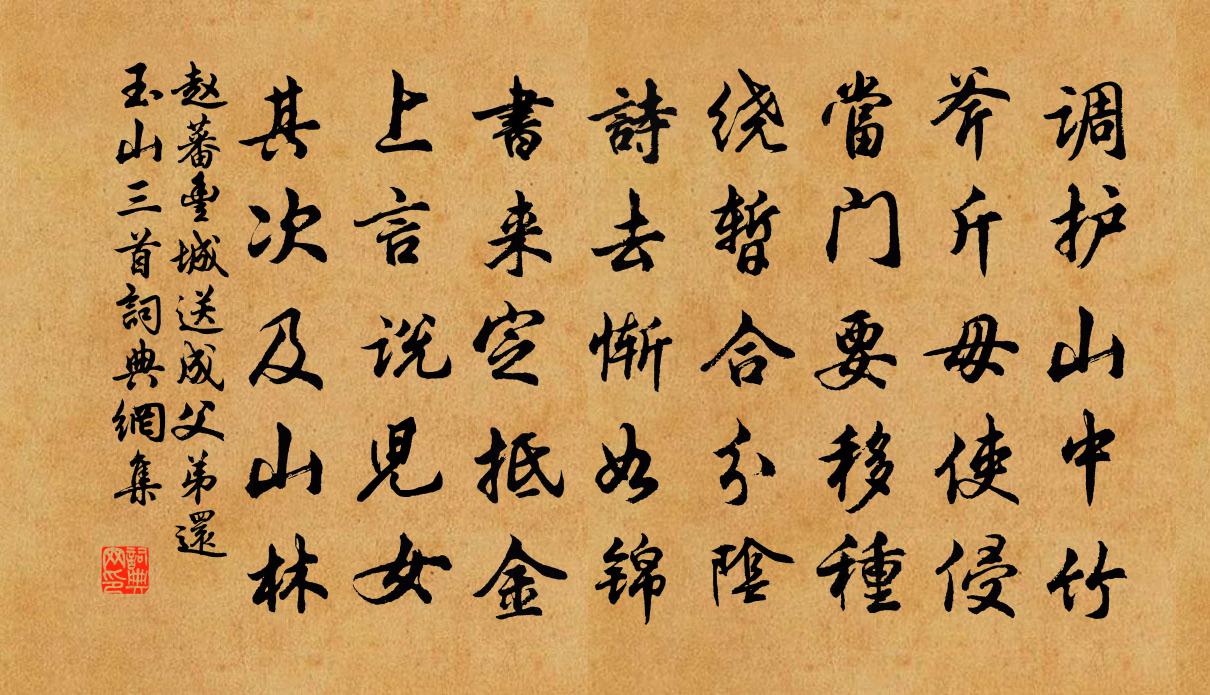 调护山中竹
斧斤毋使侵
當门要移種
绕暂合分陰
詩去惭如锦
書来定抵金
上言说児女
其次及山林
赵蕃豐城送成父弟還
玉山三首詞典網集
詞典网印